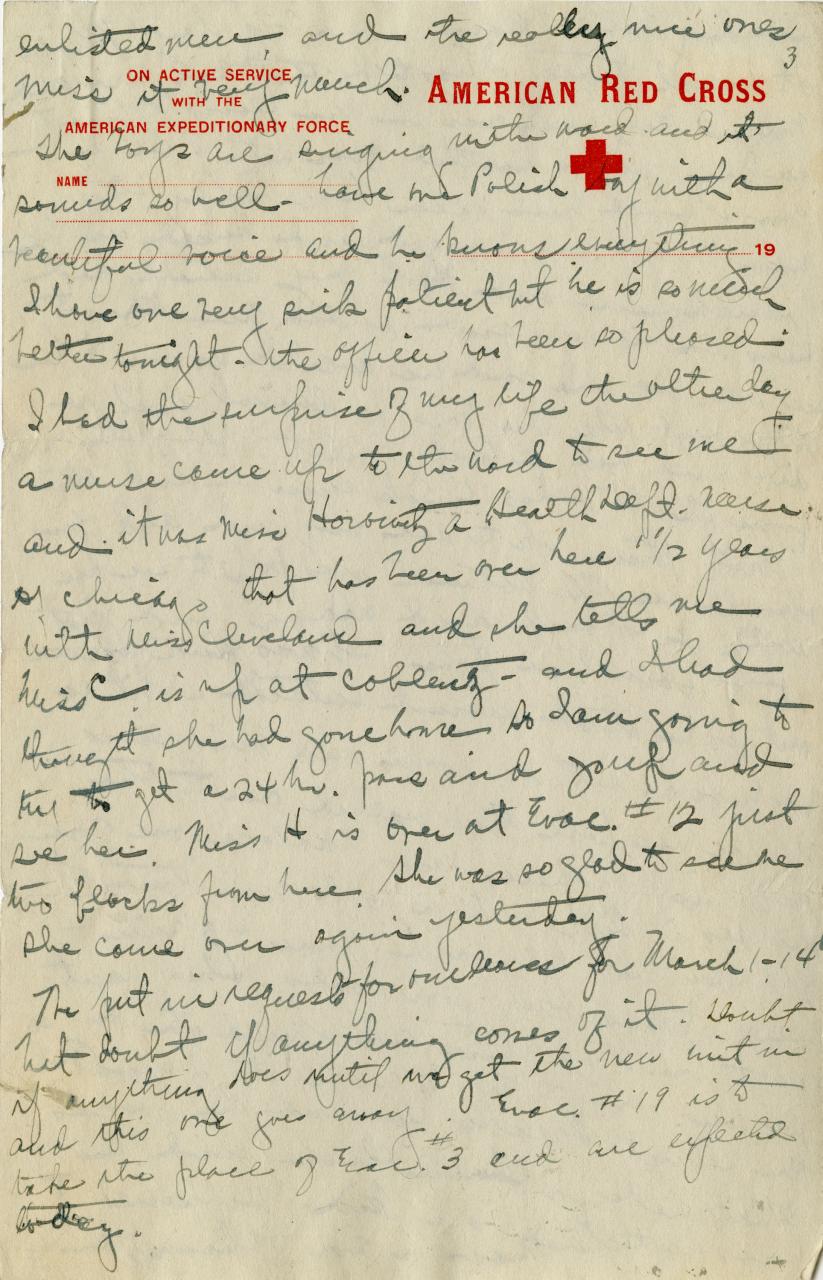 enlisted men and the really nice ones
3
miss it very much.
ON ACTIVE SERVICE
WITH THE
AMERICAN EXPEDITIONARY FORCE
AMERICAN RED CROSS
The boys are singing in the ward and it
NAME
sounds so well - have one Polish boy with a
beautiful voice and he knows everything
19
I have one very sick patient but he is so much
better tonight - the officer has been so pleased.
I had the surprise of my life the other day
a nurse came up to the ward to see me
and it was Miss Horwitz a Health Dept. nurse
of Chicago that has been over here 1 1/2 years
with Miss Cleveland and she tells me
Miss C. is up at Coblenz - and I had
thought she had gone home so I am going to
try to get a 24 hr. pass and go up and
see her. Miss H is over at Evac. #12 just
two blocks from here. She was so glad to see me
she came over again yesterday.
We put in requests for our leaves for March 1-14
but doubt if anything comes of it. Doubt
if anything does until we get the new unit in
and this one goes away. Evac. #19 is to
take the place of Evac. #3 and are expected
today.